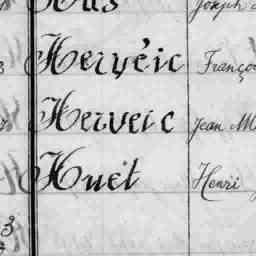 Hus Joseph
Herveic Françoi
Herveic Jean M
Huet Henri
3